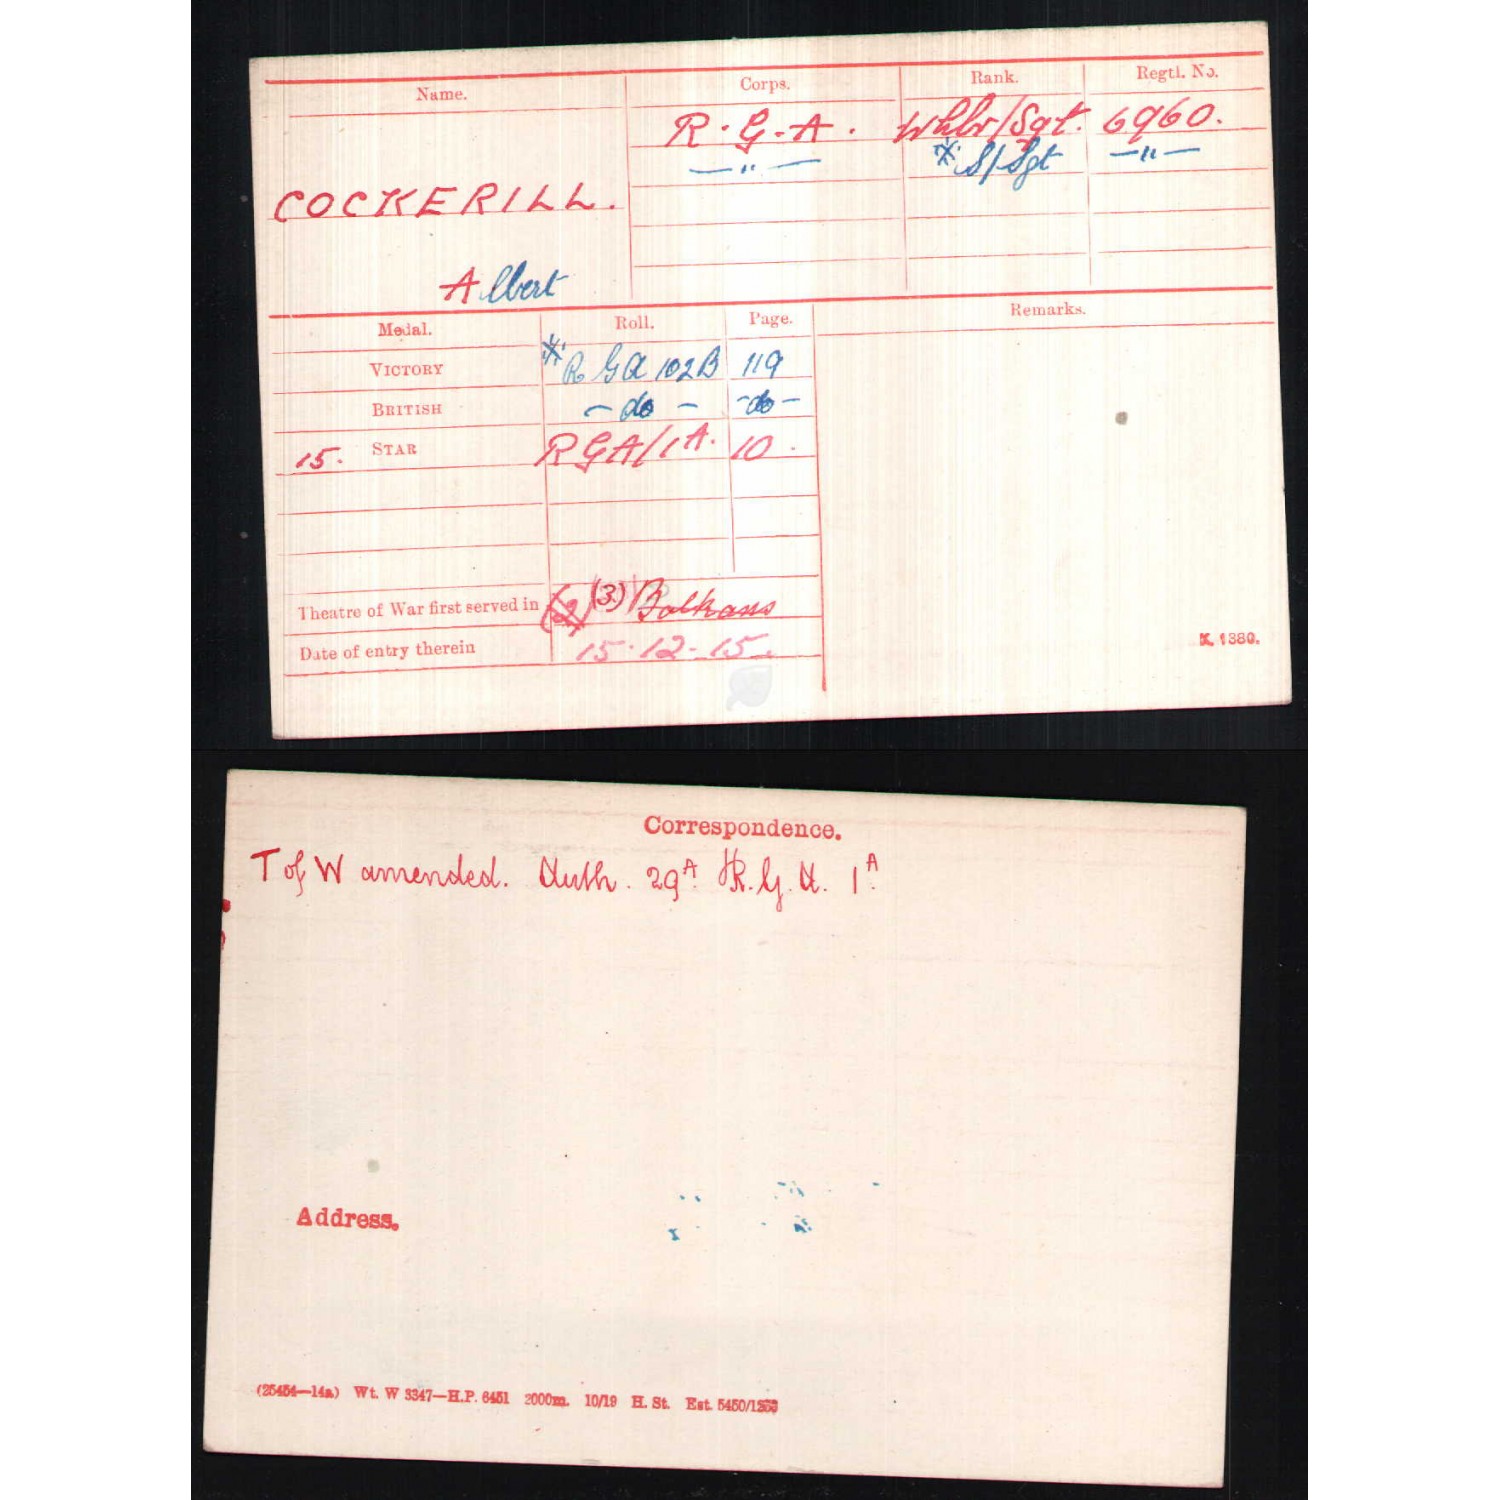 Name. Corps. Rank. Regtl. No.
R.G.A. Whlr/Sgt. 6960.
—"— * S/Sgt —"—
COCKERILL.
Albert
Medal. Roll. Page. Remarks.
VICTORY * RGA 102B 119
BRITISH - do - - do -
15. STAR RGA/1A. 10.
Theatre of War first served in (2) (3) Balkans
Date of entry therein 15.12.15.
K. 1380.
Correspondence.
T of W amended. Auth. 29A R.G.A. 1A.
Address.
(25454—14a) Wt. W 3347—H.P. 6451 2000m. 10/19 H. St. Est. 5450/1253